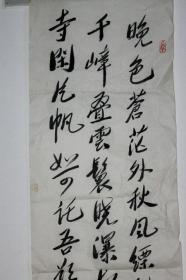 晚色蒼茫外秋風縹
千峰叠雲鬟晓瀑
寺閣片帆如可託吾